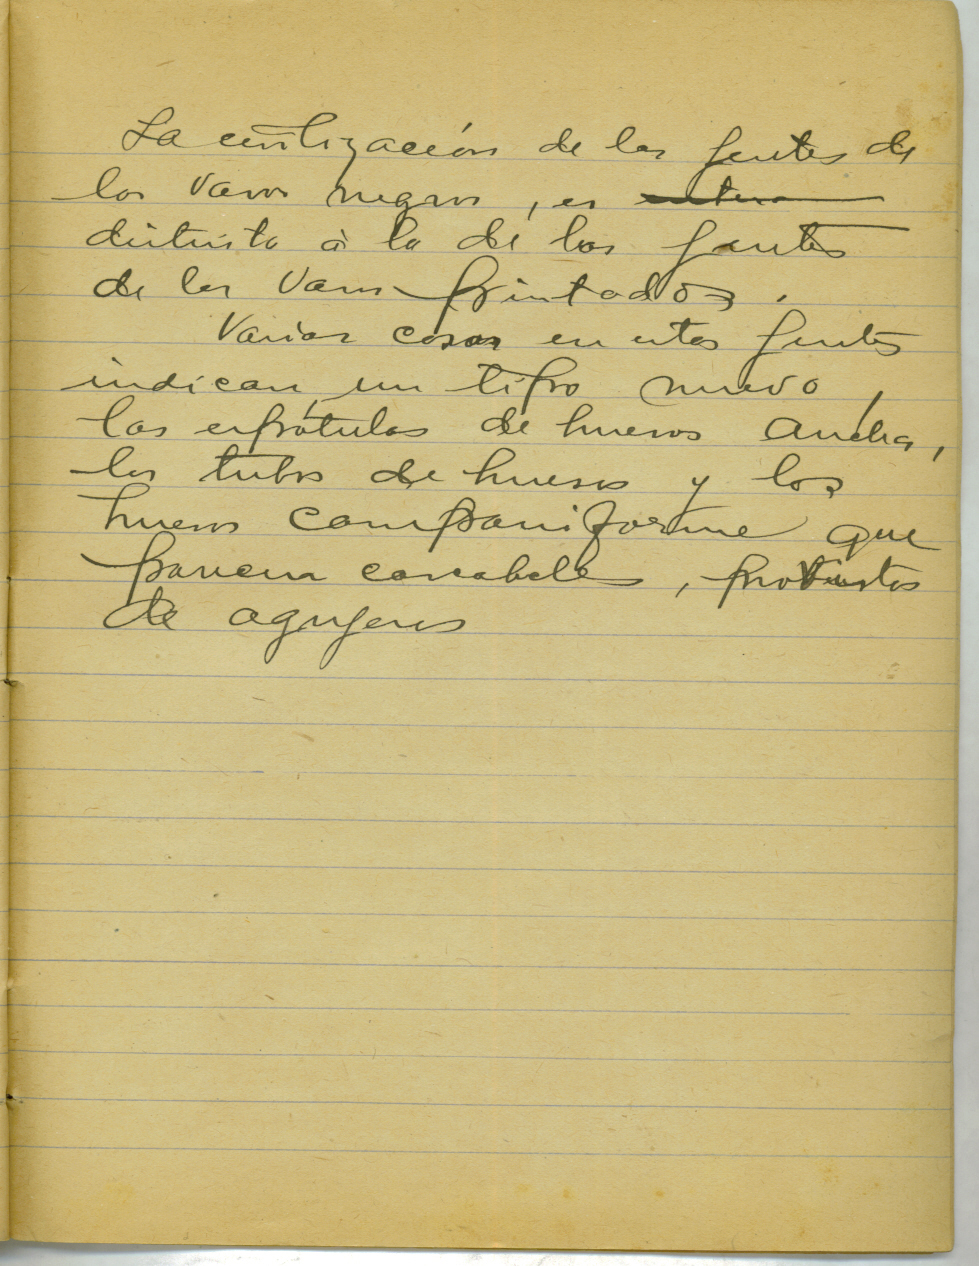 La civilización de las gentes de
los vasos negros, es entera
distinta à la de las gentes
de los vasos pintados.
Varias cosas en estas gentes
indican un tipo nuevo,
las espátulas de huesos ancha,
los tubos de huesos y los
huesos campaniforme que
parecen cascabeles, provistos
de agujeros